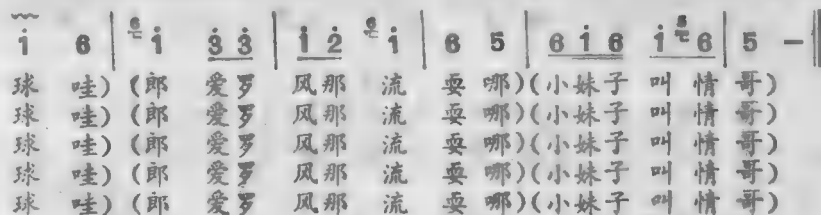 6 6 5
i 6 | i 3 3 | i 2 i | 6 5 | 6 i 6 i 6 | 5 - ‖
球 哇) (郎 爱罗 风那 流 耍 哪)(小妹子 叫 情 哥)
球 哇) (郎 爱罗 风那 流 耍 哪)(小妹子 叫 情 哥)
球 哇) (郎 爱罗 风那 流 耍 哪)(小妹子 叫 情 哥)
球 哇) (郎 爱罗 风那 流 耍 哪)(小妹子 叫 情 哥)
球 哇) (郎 爱罗 风那 流 耍 哪)(小妹子 叫 情 哥)